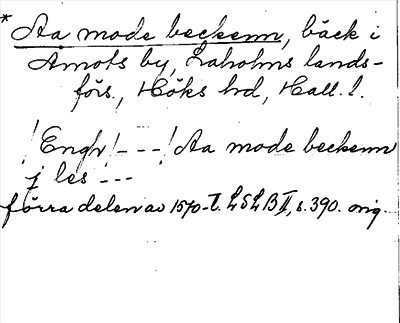 * Aa mode beckenn, bäck i
Åmots by, Laholms lands-
förs., Höks hd, Hall. l.
! Engh ! - - - ! Aa mode beckenn
j les - - -
förra delen av 1570-t. LSLB II, s. 390. orig.